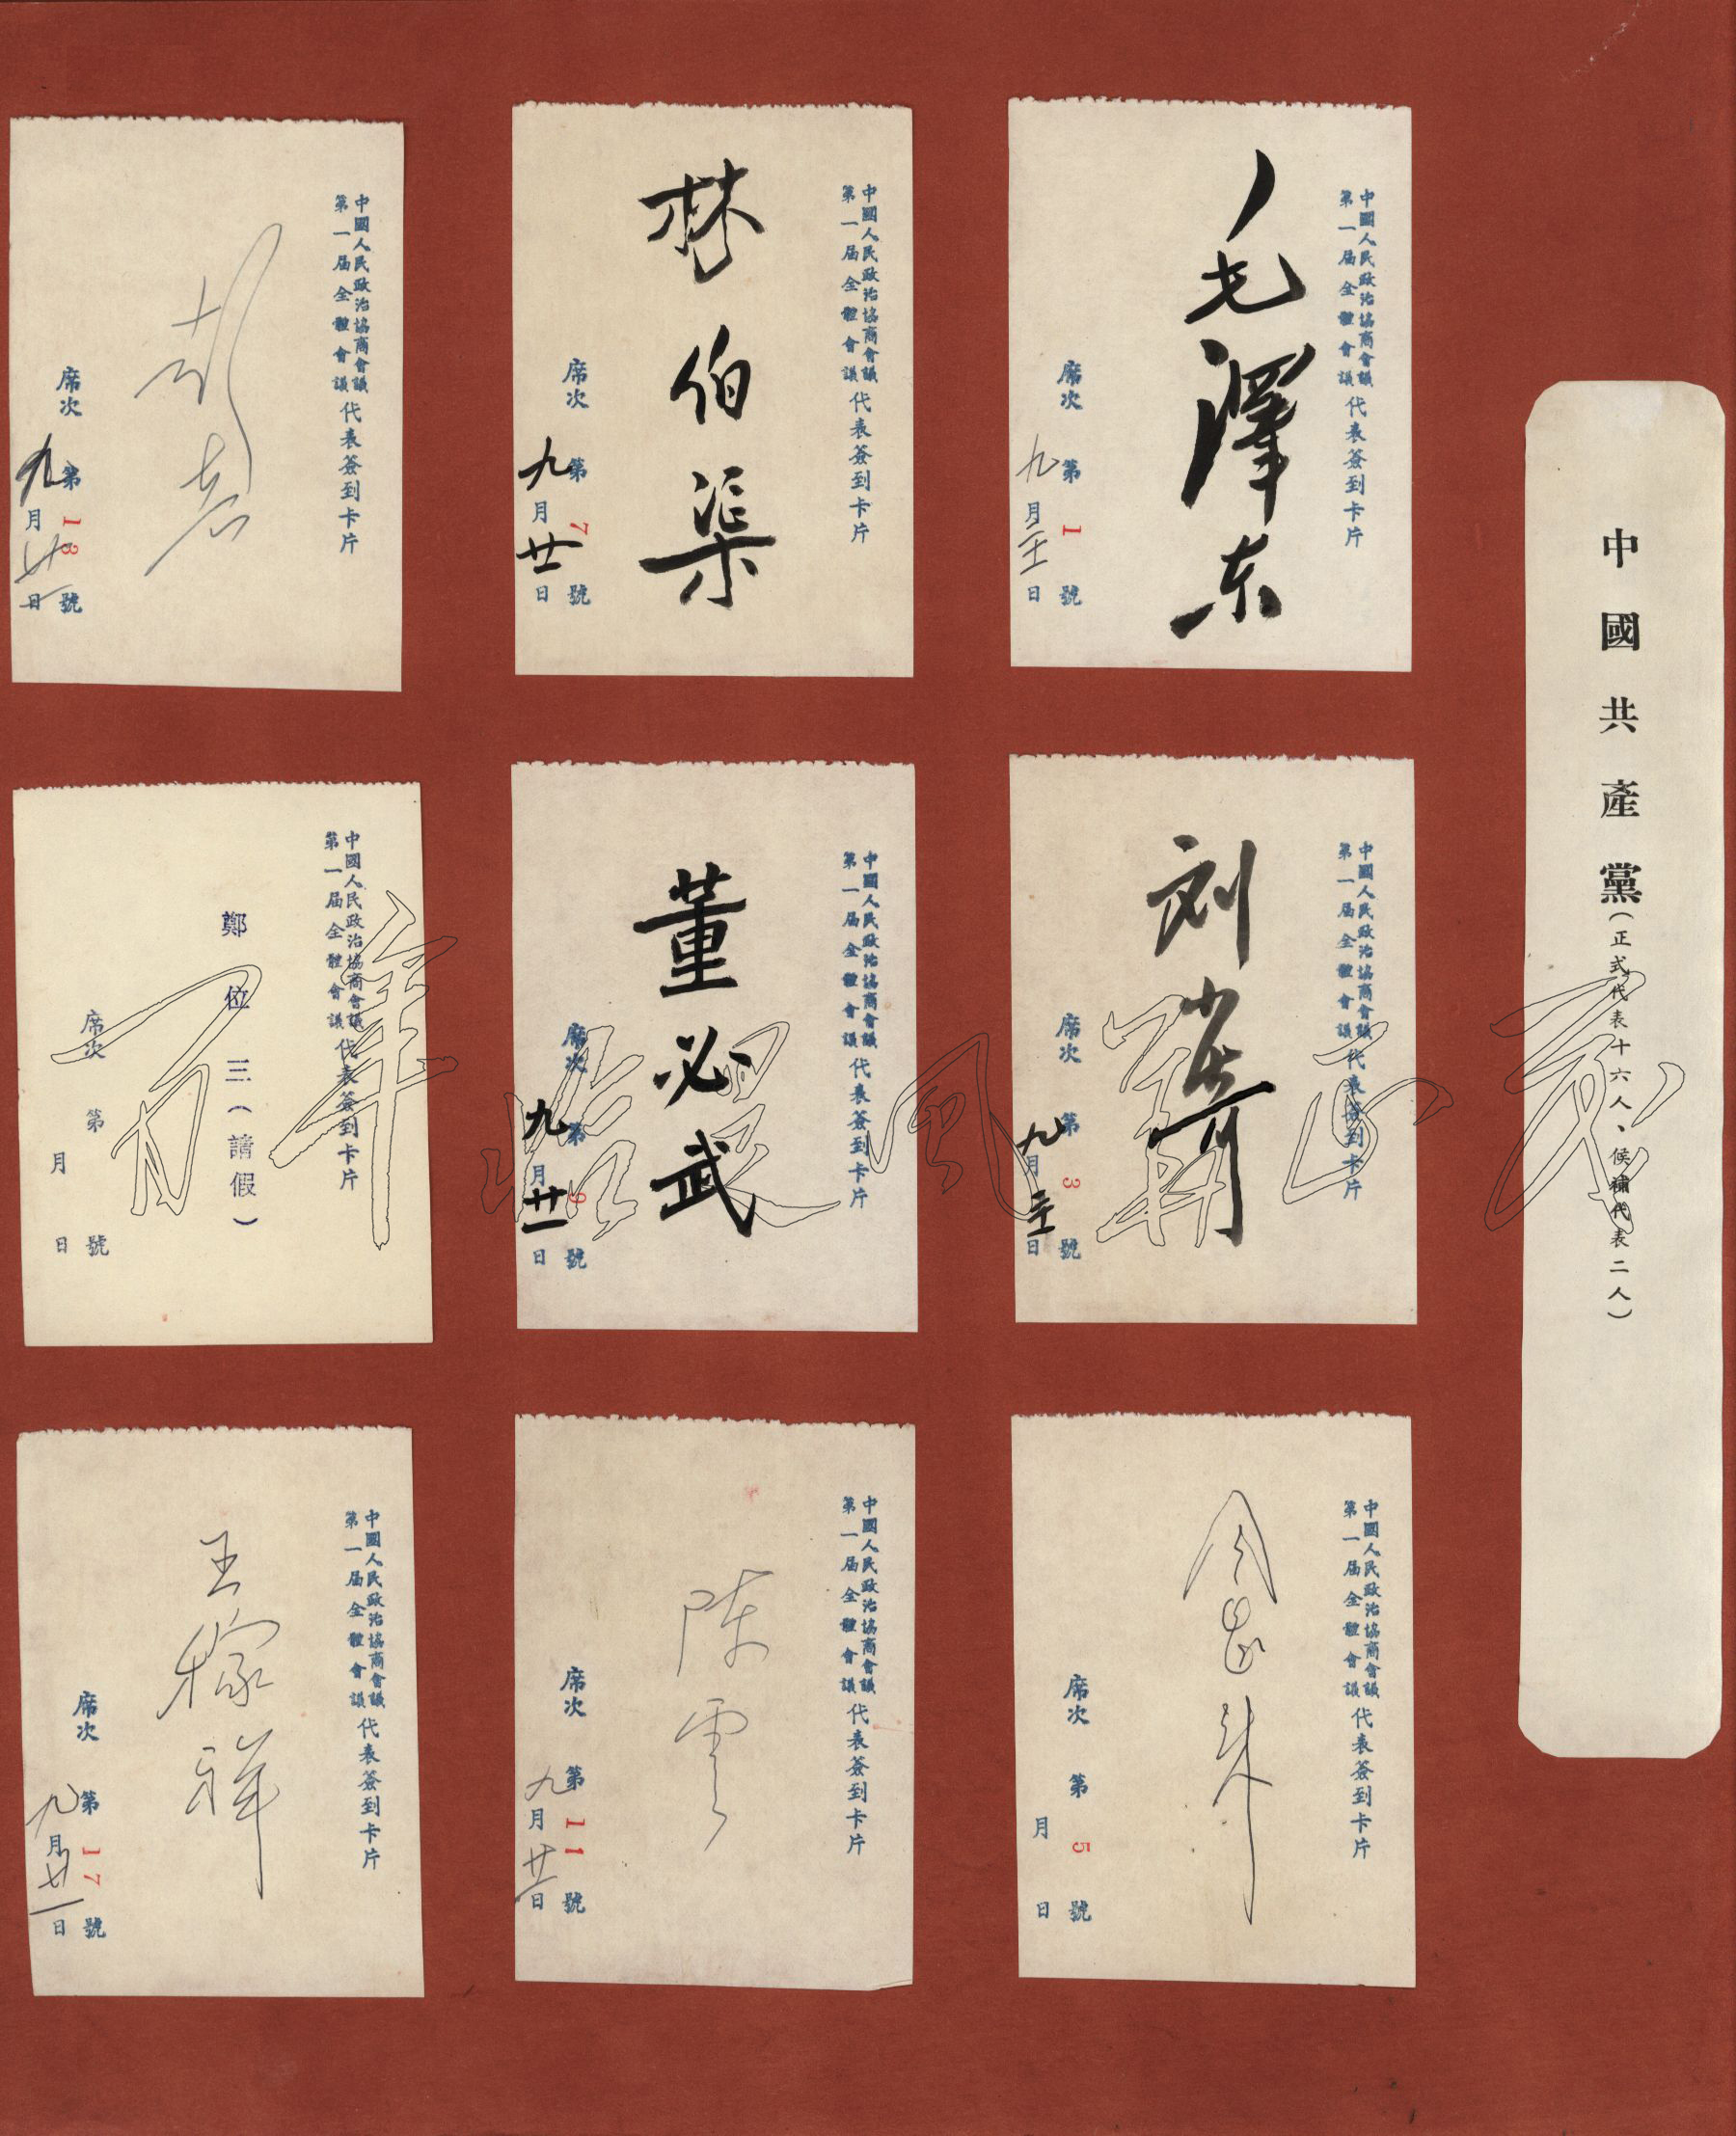 中國共產黨(正式代表十六人、候補代表二人)
中國人民政治協商會議
第一届全體會議
代表簽到卡片
毛澤东
席次 第1號
九月二十一日
中國人民政治協商會議
第一届全體會議
代表簽到卡片
刘少奇
席次 第3號
九月二十一日
中國人民政治協商會議
第一届全體會議
代表簽到卡片
周恩来
席次 第5號
月 日
中國人民政治協商會議
第一届全體會議
代表簽到卡片
林伯渠
席次 第7號
九月廿一日
中國人民政治協商會議
第一届全體會議
代表簽到卡片
董必武
席次 第9號
九月廿一日
中國人民政治協商會議
第一届全體會議
代表簽到卡片
陈雲
席次 第11號
九月廿一日
中國人民政治協商會議
第一届全體會議
代表簽到卡片
席次 第13號
九月廿一日
中國人民政治協商會議
第一届全體會議
代表簽到卡片
鄭位三(請假)
席次 第 號
月 日
中國人民政治協商會議
第一届全體會議
代表簽到卡片
王稼祥
席次 第17號
九月廿一日